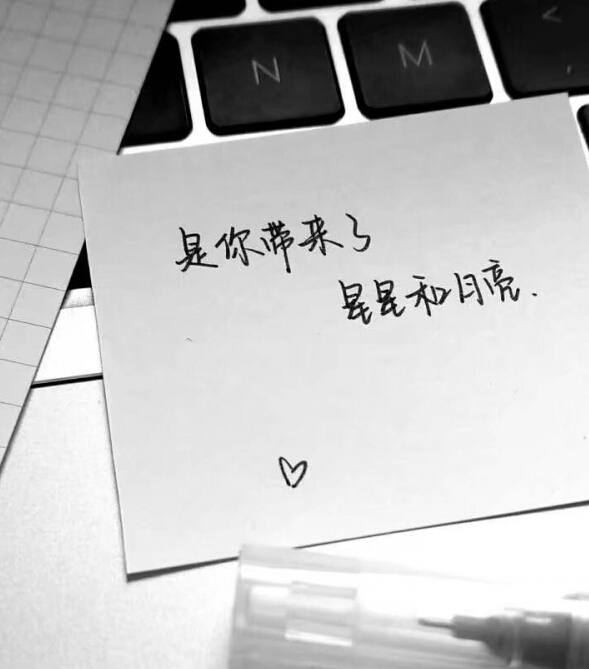 N M <
,
是你带来了
星星和月亮.